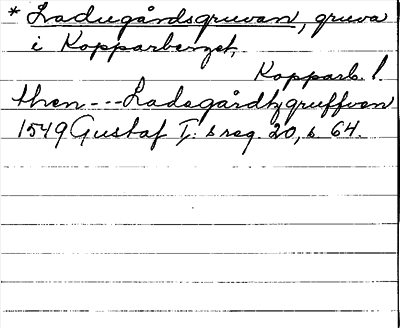 * Ladugårdsgruvan, gruva
i Kopparberget,
Kopparb. l.
then --- Ladagårdtzgruffvan
1549 Gustaf I: s reg. 20, s 64.